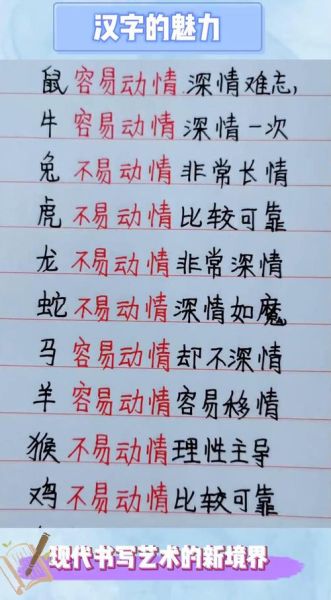 汉字的魅力
鼠容易动情.深情难忘,
牛容易动情深情一次
兔不易动情非常长情
虎不易动情比较可靠
龙不易动情非常深情
蛇不易动情深情如魔
马容易动情却不深情
羊容易动情容易移情
猴不易动情理性主导
鸡不易动情比较可靠
现代书写艺术的新境界